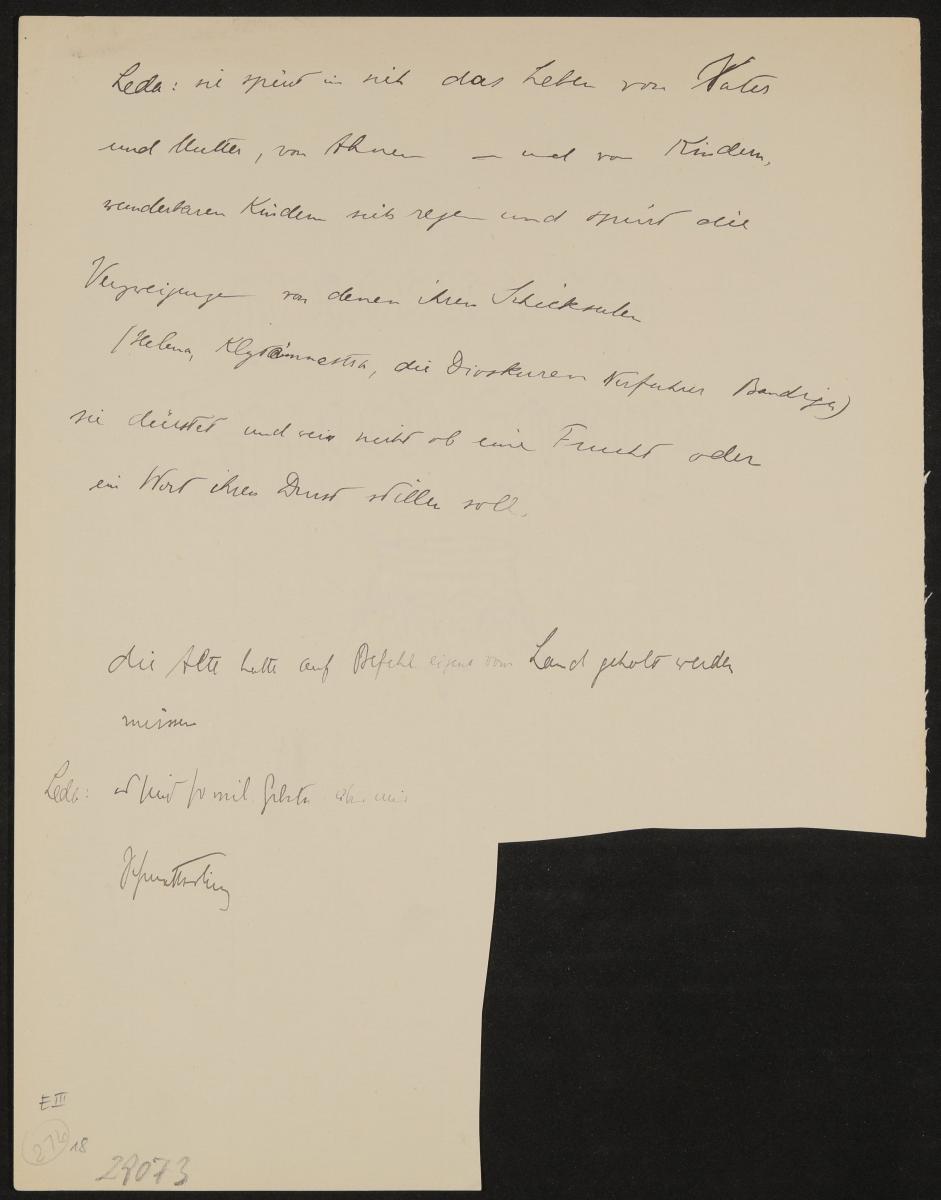 Leda: sie spürt in sich das Leben von Vater
und Mutter, von Ahnen – und von Kindern,
wunderbaren Kindern sich regen und spürt die
Verzweigungen von denen ihren Schicksalen
(Helena, Klytämnestra, die Dioskuren
sie dürstet und weiss nicht ob eine Frucht oder
ein Wort ihren Durst stillen soll.
die Alte hatte auf Befehl eigens vom Land geholt werden
müssen
Leda:
Schmetterling
E III
276 18
29073